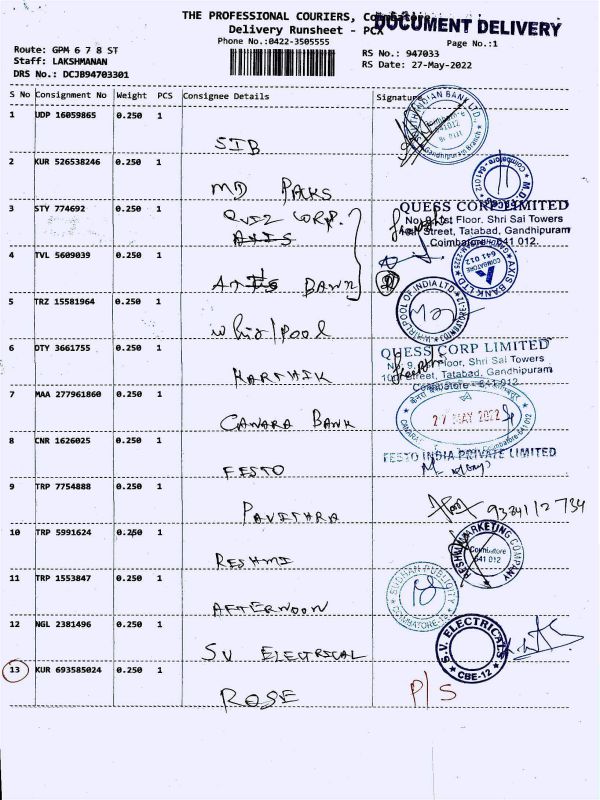 THE PROFESSIONAL COURIERS, Coimbatore
DOCUMENT DELIVERY
Delivery Runsheet - PCX
Phone No.:0422-3505555
Page No.:1
Route: GPM 6 7 8 ST
RS No.: 947033
Staff: LAKSHMANAN
RS Date: 27-May-2022
DRS No.: DCJB94703301
S No Consignment No Weight PCS Consignee Details Signature
1 UDP 16059865 0.250 1
SIB
SOUTH INDIAN BANK LTD.
641012
2 KUR 526538246 0.250 1
MD PACKS
Coimbatore - 641 012
3 STY 774692 0.250 1
QUIZ CORP.
AXIS
QUESS CORP LIMITED
No. 9, 1st Floor, Shri Sai Towers
Street, Tatabad, Gandhipuram
Coimbatore - 641 012.
4 TVL 5609039 0.250 1
AXIS BANK
AXIS BANK LTD
COIMBATORE
641 012
5 TRZ 15581964 0.250 1
whirlpool
WHIRLPOOL OF INDIA LTD
6 DTY 3661755 0.250 1
KARTHIK
QUESS CORP LIMITED
No. 9, Floor, Shri Sai Towers
Street, Tatabad, Gandhipuram
Coimbatore - 641 012
7 MAA 277961860 0.250 1
CANARA BANK
27 MAY 2022
Coimbatore 641 012
8 CNR 1626025 0.250 1
FESTO
FESTO INDIA PRIVATE LIMITED
9 TRP 7754888 0.250 1
PAVITHRA
9384112734
10 TRP 5991624 0.250 1
RESHMI
RESHMI MARKETING COMPANY
Coimbatore
641 012
11 TRP 1553847 0.250 1
AFTERNOON
PUBLICITY
COIMBATORE-12
12 NGL 2381496 0.250 1
SV ELECTRICAL
S.V. ELECTRICALS
CBE-12
13 KUR 693585024 0.250 1
ROSE
P/S